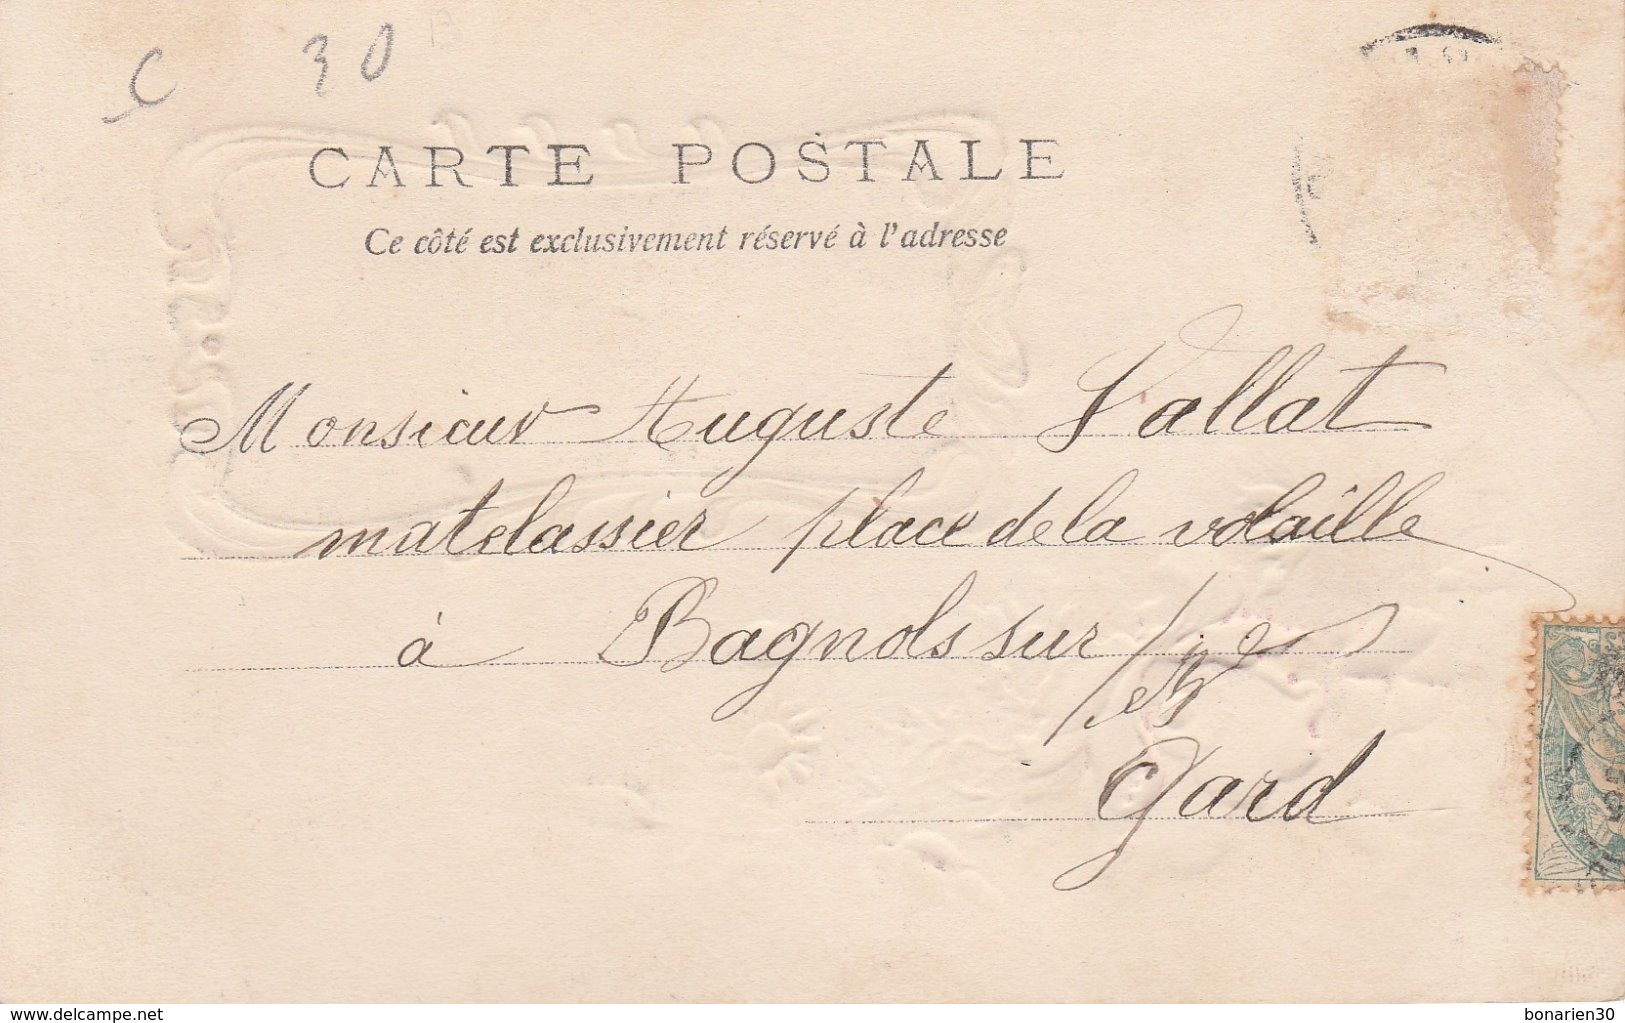 C 30
CARTE POSTALE
Ce côté est exclusivement réservé à l'adresse
Monsieur Auguste Vallat
matelassier place de la volaille
à Bagnols sur
Gard
www.delcampe.net
bonarien30